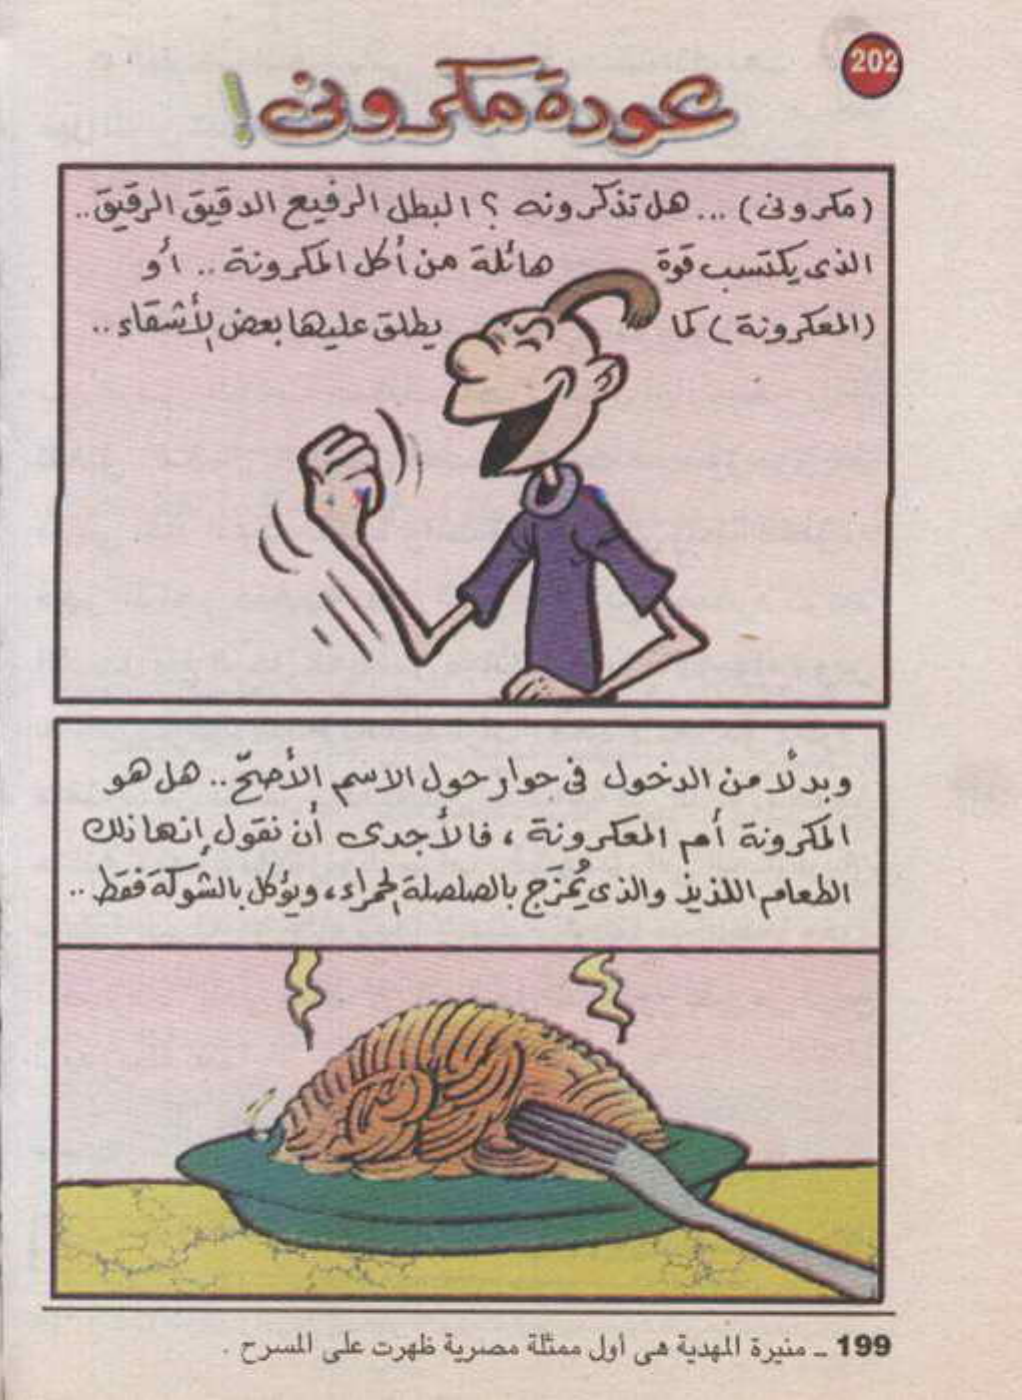 202
عودة مكرونى!
(مكرونى) ... هل تذكرونه ؟ البطل الرفيع الدقيق الرقيق..
الذى يكتسب قوة هائلة من أكل المكرونة .. أو
(المعكرونة) كما يطلق عليها بعض الأشقاء ..
وبدلًا من الدخول فى حوار حول الاسم الأصحّ .. هل هو
المكرونة أم المعكرونة ، فالأجدى أن نقول إنها ذلك
الطعام اللذيذ والذى يُمزَج بالصلصلة الحمراء ، ويؤكل بالشوكة فقط ..
199 ـ منيرة المهدية هى أول ممثلة مصرية ظهرت على المسرح .